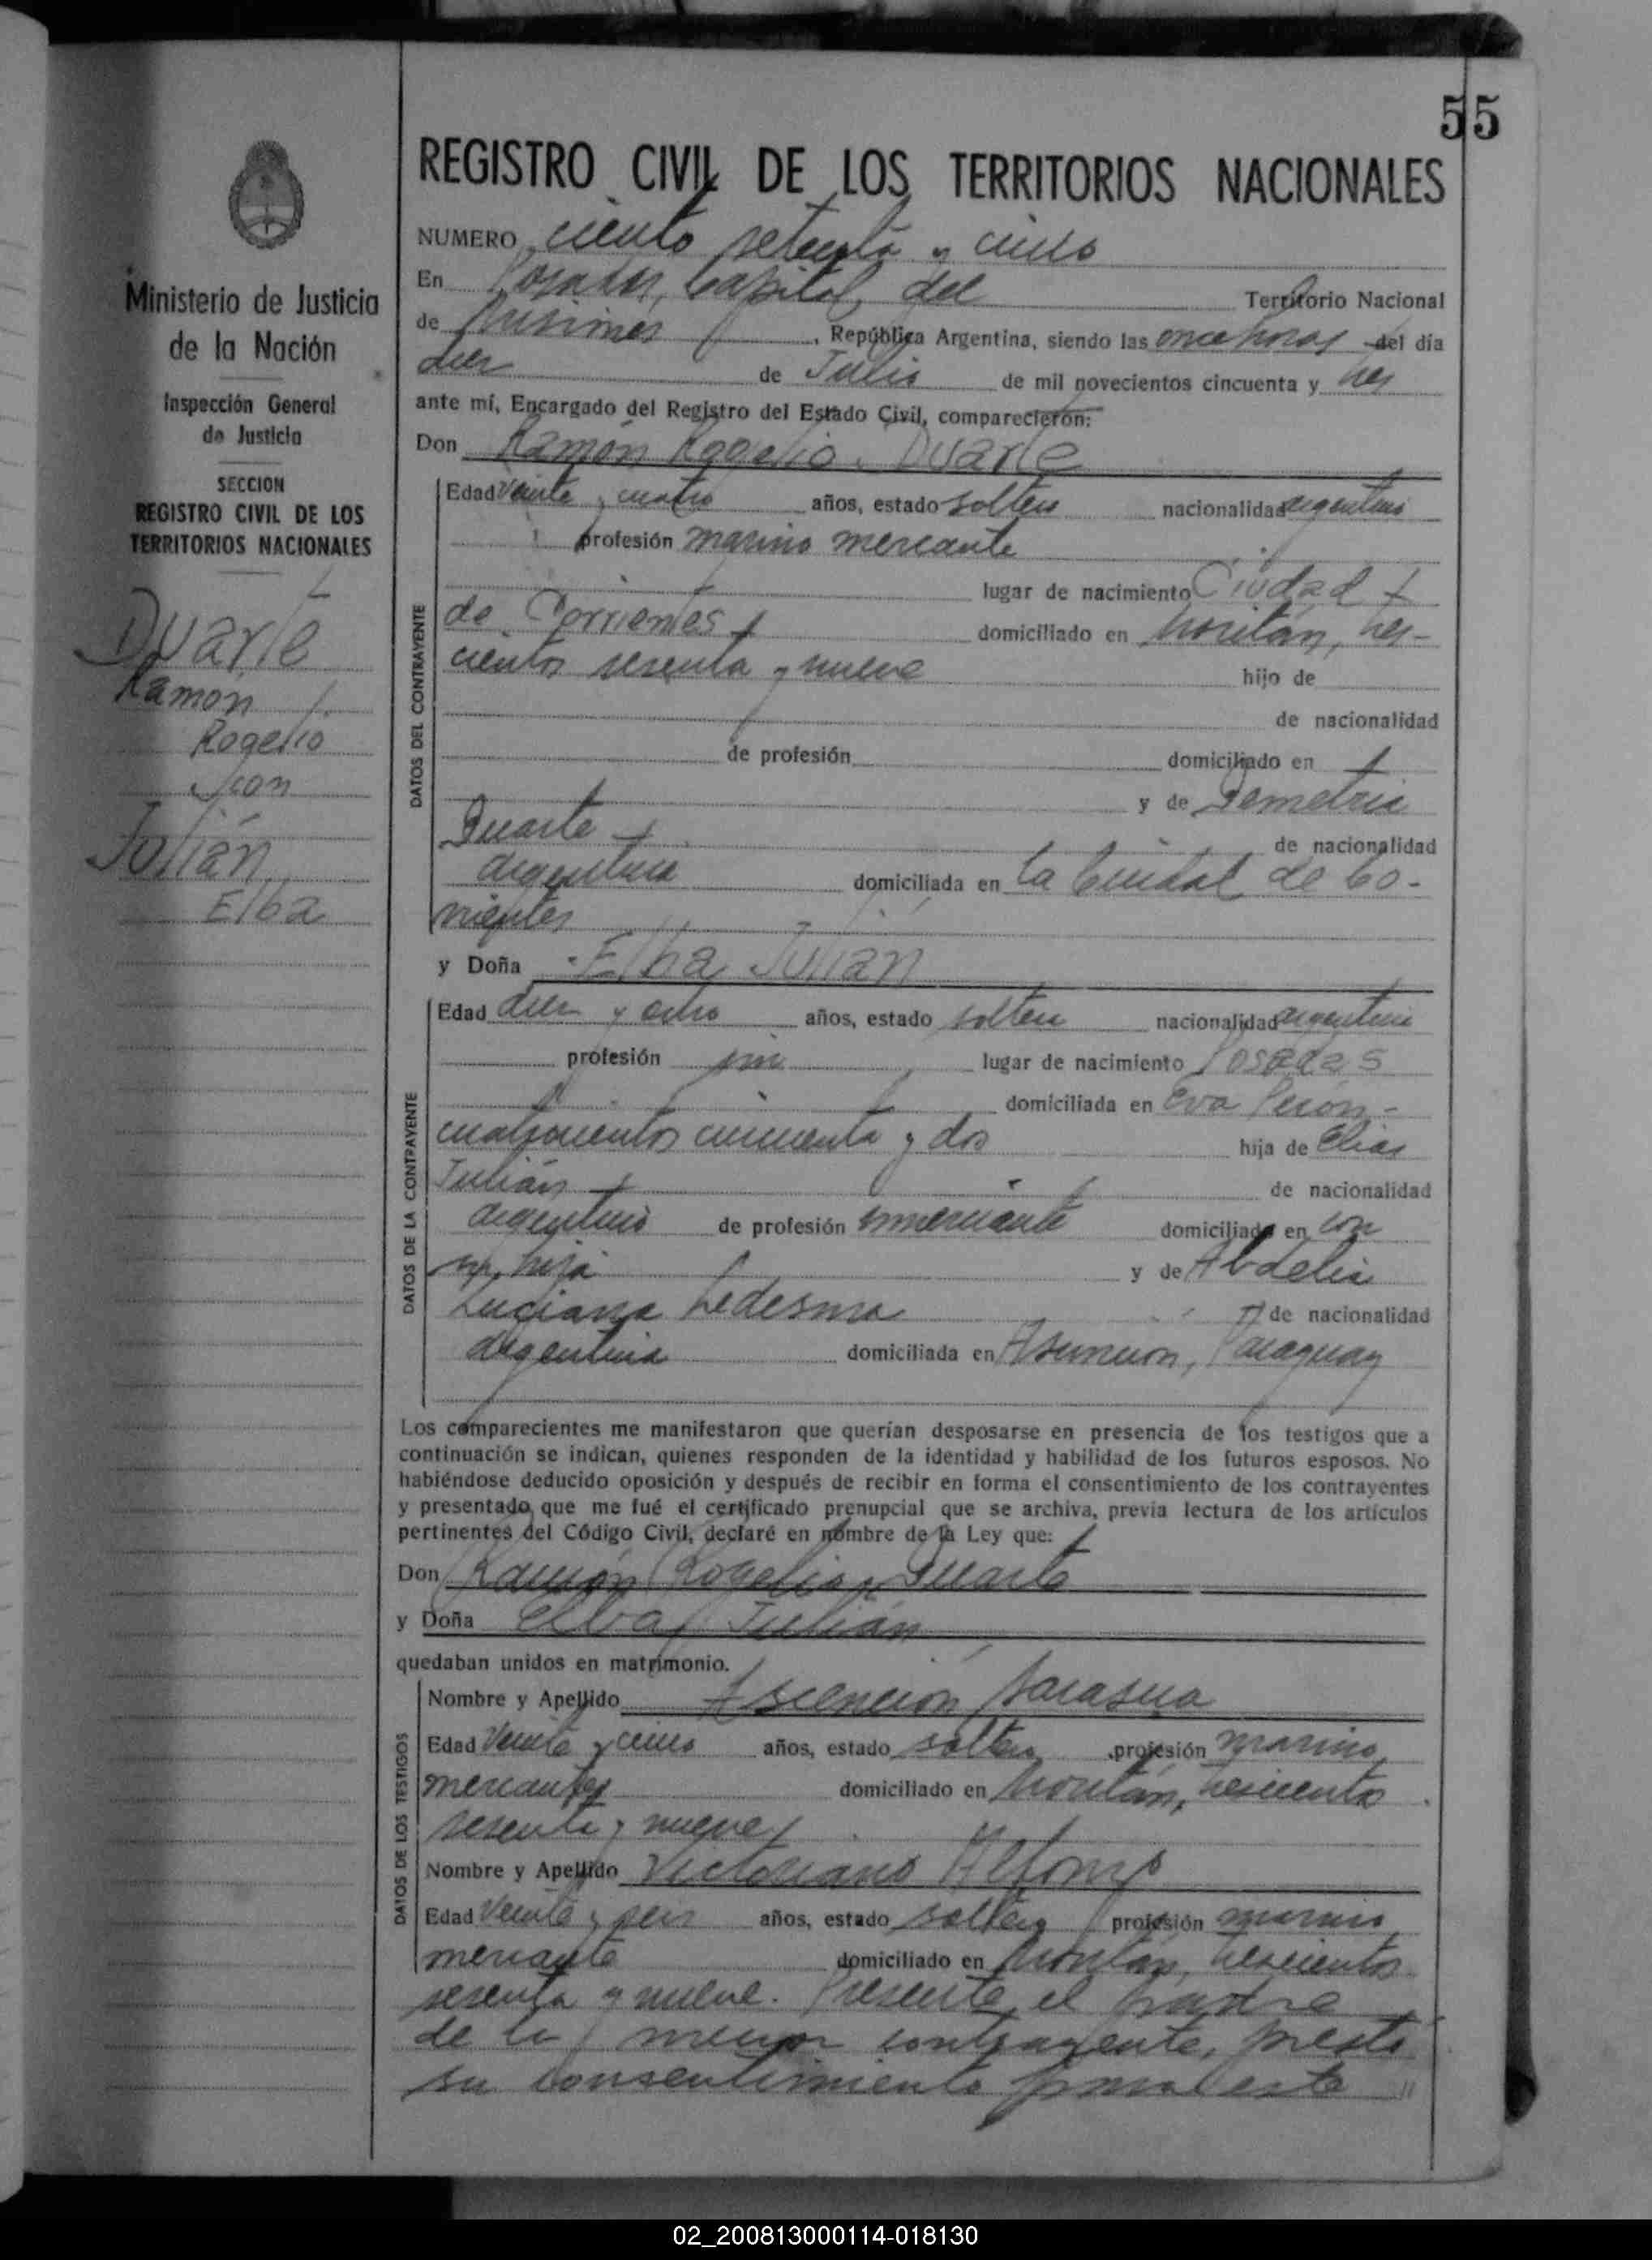 55
REGISTRO CIVIL DE LOS TERRITORIOS NACIONALES
Ministerio de Justicia
de la Nación
Inspección General
de Justicia
SECCION
REGISTRO CIVIL DE LOS
TERRITORIOS NACIONALES
Duarte
Ramón
Rogelio
con
Julián
Elba
NUMERO ciento setenta y cinco
En Posadas, Capital del Territorio Nacional
de Misiones, República Argentina, siendo las once horas del día
diez de Julio de mil novecientos cincuenta y tres
ante mí, Encargado del Registro del Estado Civil, comparecieron:
Don Ramón Rogelio Duarte
DATOS DEL CONTRAYENTE
Edad veinte y cuatro años, estado soltero nacionalidad argentino
profesión marino mercante
lugar de nacimiento Ciudad
de Corrientes domiciliado en tres-
cientos sesenta y nueve hijo de
de nacionalidad
de profesión domiciliado en
y de Demetria
Duarte de nacionalidad
argentina domiciliada en la Ciudad de Co-
rrientes
y Doña Elba Julián
DATOS DE LA CONTRAYENTE
Edad diez y ocho años, estado soltera nacionalidad argentina
profesión sin lugar de nacimiento Posadas
domiciliada en Eva Perón -
cuatrocientos cincuenta y dos hija de Elias
Julián de nacionalidad
argentino de profesión comerciante domiciliado en con
su hija y de Abdelia
Luciana Ledesma de nacionalidad
argentina domiciliada en Asunción, Paraguay
Los comparecientes me manifestaron que querían desposarse en presencia de los testigos que a
continuación se indican, quienes responden de la identidad y habilidad de los futuros esposos. No
habiéndose deducido oposición y después de recibir en forma el consentimiento de los contrayentes
y presentado que me fué el certificado prenupcial que se archiva, previa lectura de los artículos
pertinentes del Código Civil, declaré en nombre de la Ley que:
Don Ramón Rogelio Duarte
y Doña Elba Julián
quedaban unidos en matrimonio.
DATOS DE LOS TESTIGOS
Nombre y Apellido Ascención Sarasua
Edad veinte y cinco años, estado soltero profesión marino
mercante domiciliado en trescientos
sesenta y nueve
Nombre y Apellido Victoriano Alfonso
Edad veinte y seis años, estado soltero profesión marino
mercante domiciliado en trescientos
sesenta y nueve. Presente el padre
de la menor contrayente, presta
su consentimiento para este "
02_200813000114-018130